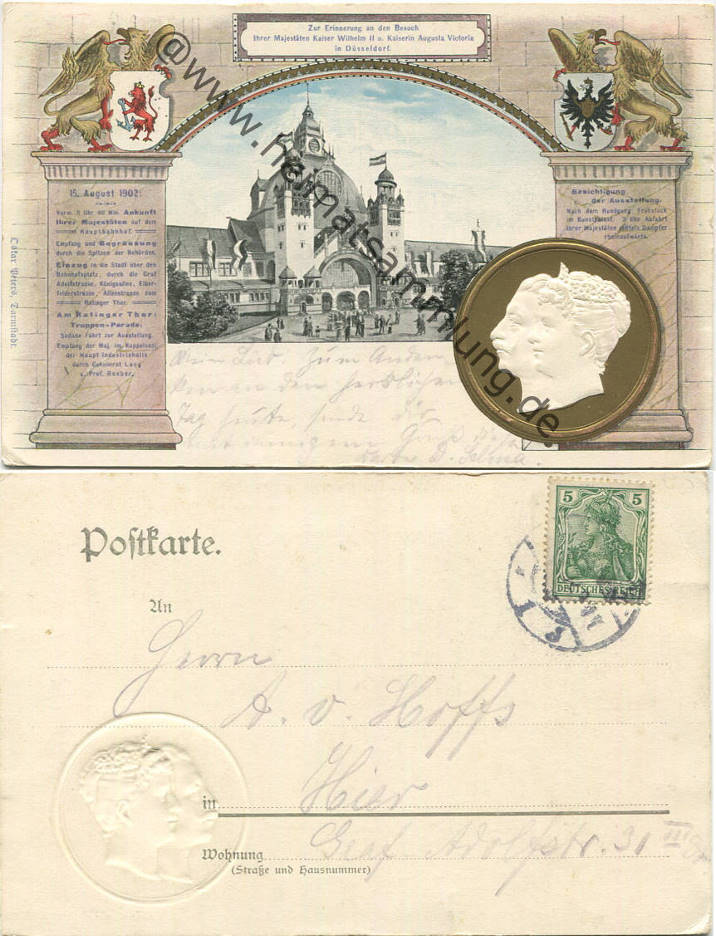 Zur Erinnerung an den Besuch
Ihrer Majestäten Kaiser Wilhelm II u. Kaiserin Augusta Victoria
in Düsseldorf.
15. August 1902:
Ankunft
Ihrer Majestäten auf dem
Hauptbahnhof.
Empfang und Begrüssung
durch die Spitzen der Behörden.
Einzug in die Stadt über den
Bahnhofsplatz, durch die Graf
Adolfstrasse, Königsallee, Elber-
felderstrasse, Alleestrasse zum
Ratinger Thor.
Am Ratinger Thor:
Truppen-Parade;
Sodann Fahrt zur Ausstellung.
Empfang der Maj. im Kuppelsaal
der Haupt Industriehalle
durch Geheimrat Lueg
u. Prof. Roeber.
Besichtigung
der Ausstellung.
Nach dem Rundgang Frühstück
im Kunstpalast. 3 Uhr Abfahrt
Ihrer Majestäten mittels Dampfer
rheinaufwärts.
Darmstadt.
@www.heimatsammlung.de
Zum Anden
ken an den herzlichen
Tag heute, sende dir
Gruß
Postkarte.
5 5
DEUTSCHES REICH
An
Herrn
A. v. Hoffs
in Hier
Wohnung Graf Adolfstr. 31 III
(Straße und Hausnummer)